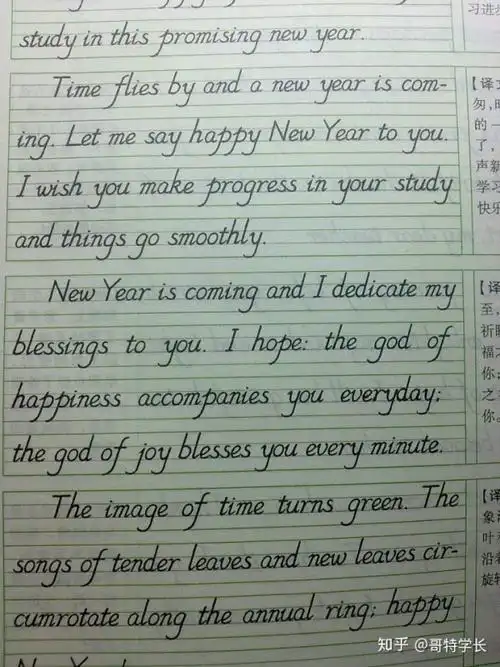 study in this promising new year.
Time flies by and a new year is com-
ing. Let me say happy New Year to you.
I wish you make progress in your study
and things go smoothly.
New Year is coming and I dedicate my
blessings to you. I hope: the god of
happiness accompanies you everyday;
the god of joy blesses you every minute.
The image of time turns green. The
songs of tender leaves and new leaves cir-
cumrotate along the annual ring; happy
New Year
习进步
【译
匆,
的一
了,
声新
学习
快乐
【译
至,
祈
福
你:
之
你。
【译
象
叶
沿着
旋转
知乎 @哥特学长